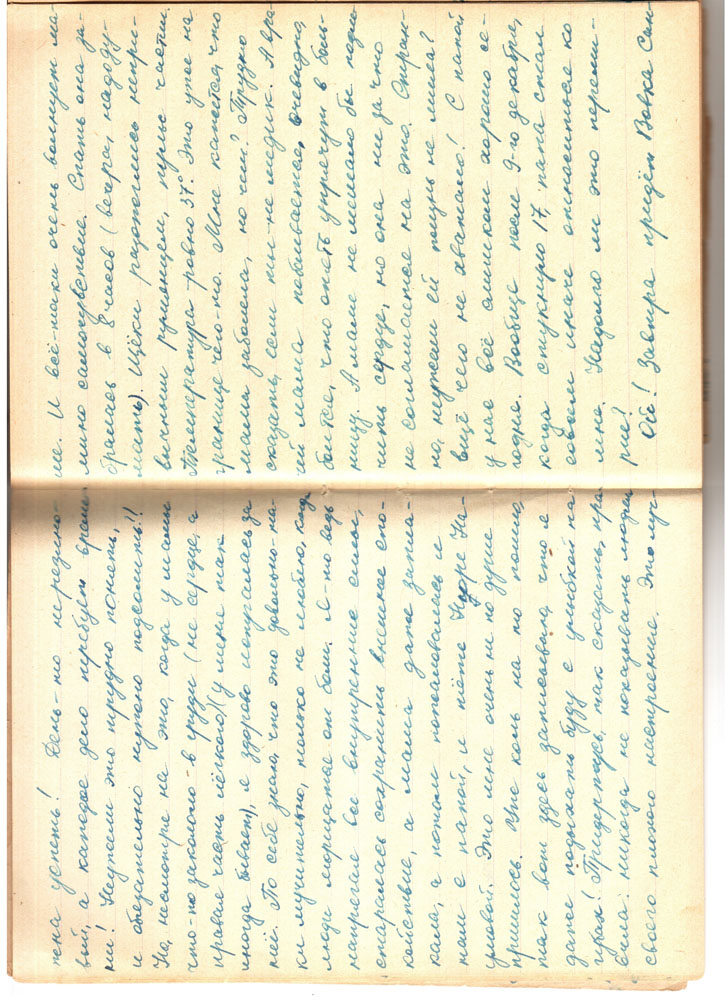 жена успеть! День-то не резино-
вый, а каждое дело требует време-
ни! Неужели это трудно понять,
и обязательно нужно подгонять!!
Но, несмотря на это, когда у мамы
что-то закололо в груди (не сердце, а
правая часть лёгкого)(у меня так
иногда бывает), я здорово испугалась за
неё. По себе знаю, что это довольно-та-
ки мучительно, только не люблю, когда
люди морщатся от боли. Я-то ведь
напрягая все внутренние силы,
старалась сохранить внешнее спо-
койствие, а мама даже запла-
кала, а потом поплавались и
мы с папой, и тётя Нюра На-
умовой. Это мне очень не по душе
пришлось. Уже коль на то пошло,
так вот здесь записываю, что я
даже подыхать буду с улыбкой на
губах! Придержусь, так сказать, пра-
вила: никогда не показывать людям
своего плохого настроения. Это луч-
ше. И всё-таки очень волнует ма-
мино самочувствие. Спать она за-
бралась в 8 часов (вечера, надо ду-
мать). Щёки разгорелись непри-
вычным румянцем, пульс частит.
Температура ровно 37°. Это уже на
границе чего-то. Мне кажется, что
мама заболела, но чем? Трудно
сказать, если ты-не медик. А вра-
чей мама побаивается, очевидно,
боится, что опять упрячут в боль-
ницу. А маме не мешало бы подле-
чить сердце, но она ни за что
не соглашается на это. Стран-
но, неужели ей жизнь не мила?
Ещё чего не хватало! С папой
у нас всё слишком хорошо се-
годня. Вообще после 9-го декабря,
когда стукнуло 17, папа стал
совсем иначе относиться ко
мне. Надолго ли это переми-
рие?
Ой! Завтра придёт Вовка Сан-